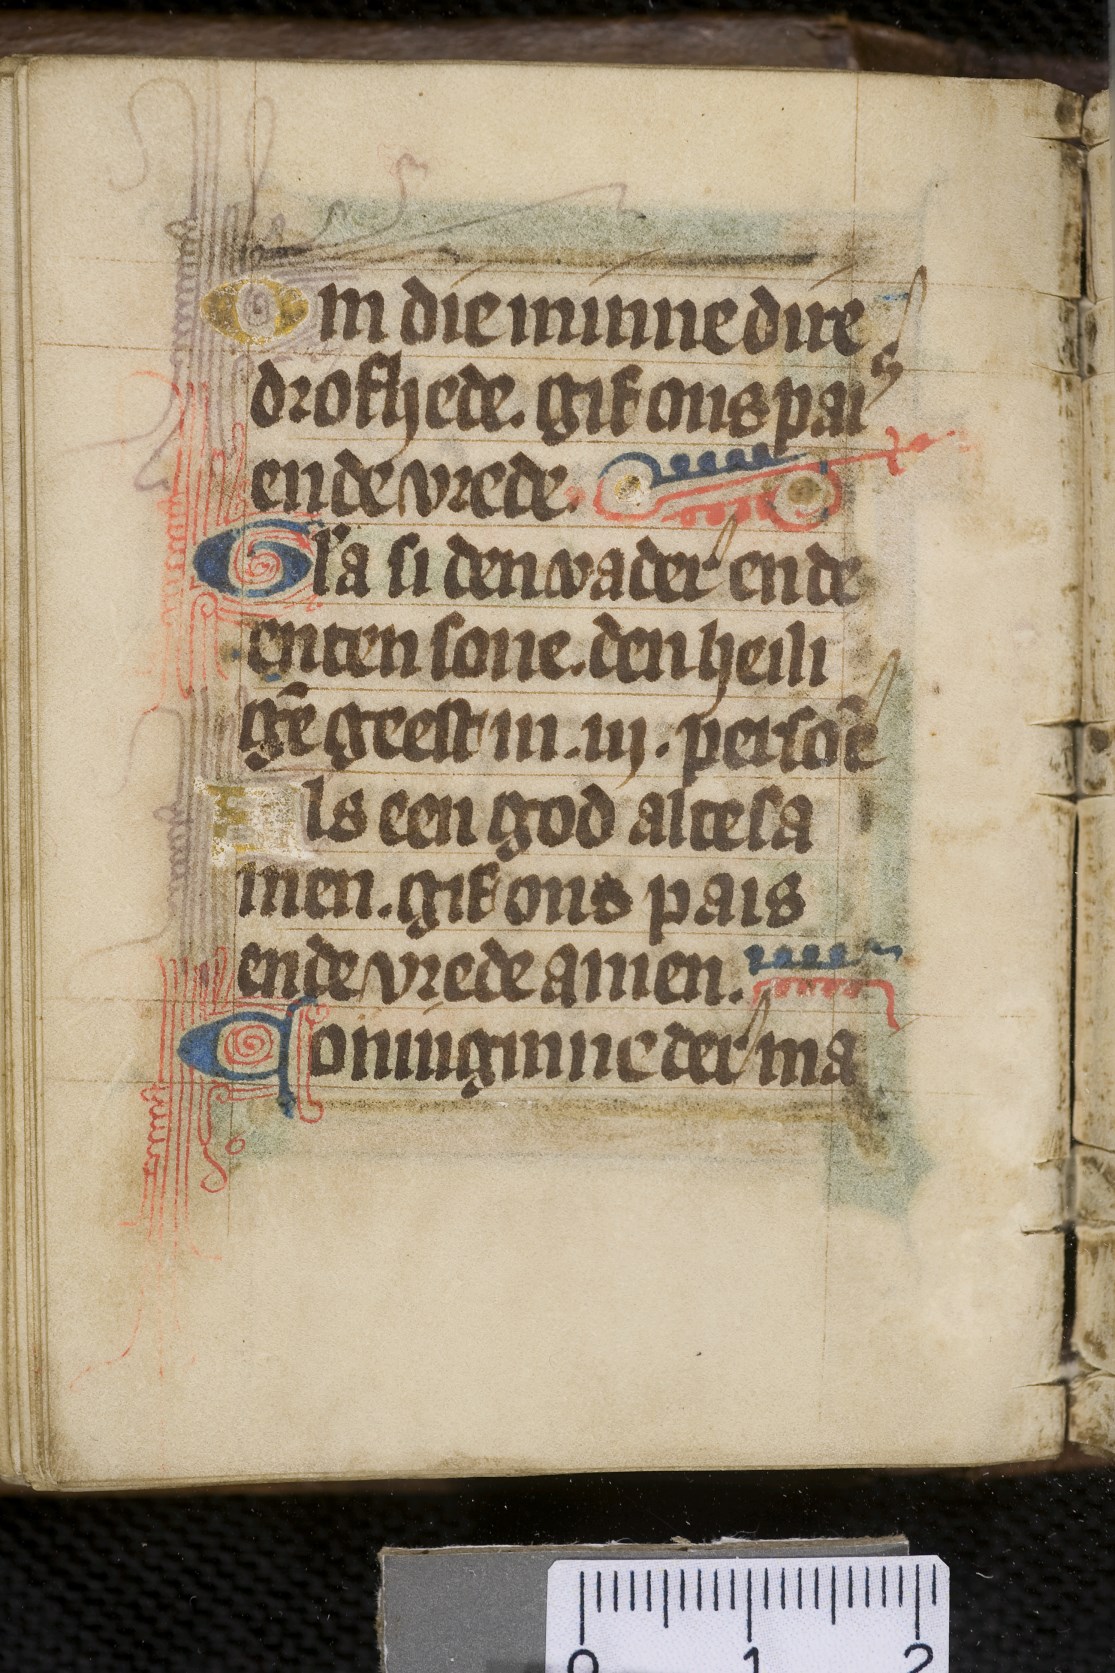 Om die minne dire
drofhede. gif ons pais
ende vrede.
Gl'a si den vader ende
enten sone. den heili
gē geest in .iij. persōē
Als een god altesa
men. gif ons pais
ende vrede amen.
Coninginne der ma
0 1 2